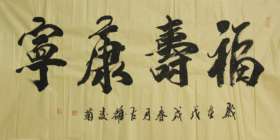 福壽康寧
歲在戊戌春月吉